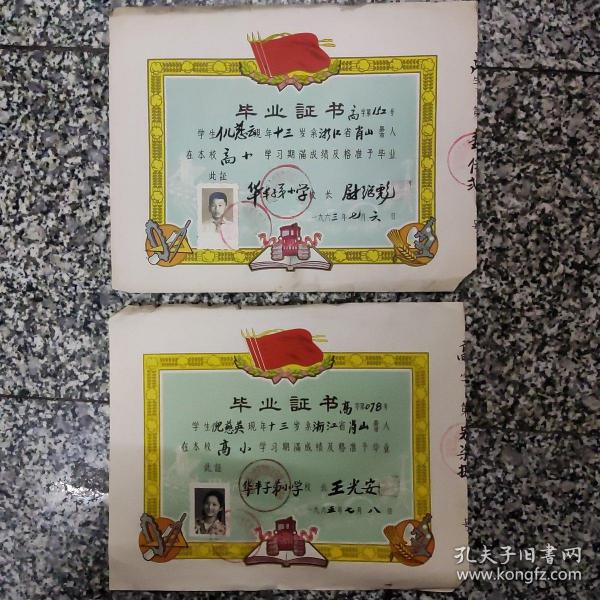 毕业証书 高字第152号
学生仉慈 现年十三岁系浙江省肖山县人
在本校高小学习期滿成绩及格准予毕业
此証
华丰子弟小学校长 尉
一九六三年七月六日
毕业証书 高字第078号
学生倪慈英现年十三岁系浙江省肖山县人
在本校高小学习期滿成绩及格准予毕业
此証
华丰子弟小学校长 王光安
一九六五年七月八日
孔夫子旧書网
www.kongfz.com